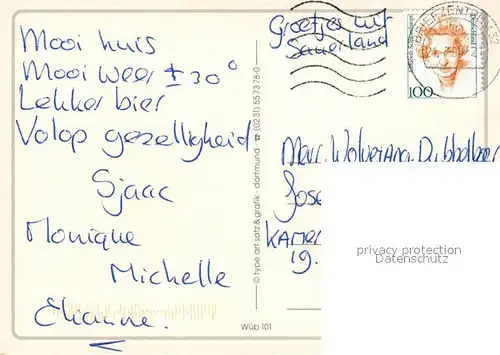 Mooi huis
Mooi weer ± 30°
Lekker bier
Volop gezelligheid
Sjaac
Monique
Michelle
Elianne.
© type art satz & grafik · dortmund ☎ (0231) 557378-0
Wüb 101
Groetjes uit
Sauerland
BRIEFZENTRUM 32
100
Marc.
Jose
KAMER
19.
privacy protection
Datenschutz